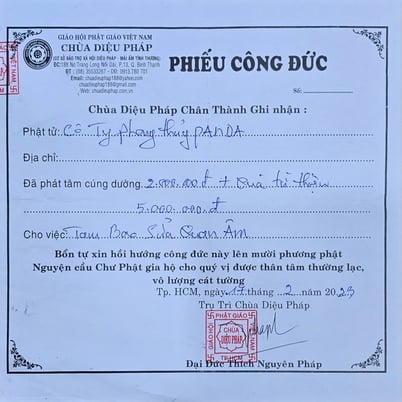 GIÁO HỘI PHẬT GIÁO VIỆT NAM
CHÙA DIỆU PHÁP
(CƠ SỞ BẢO TRỢ XÃ HỘI DIỆU PHÁP - MÁI ẤM TÌNH THƯƠNG)
ĐC:188 Nơ Trang Long Nối Dài, P.13, Q. Bình Thạnh
ĐT : (08) 35533267 - DĐ: 0913.780 701
Email: chuadieuphap188@yahoo.com
chuadieuphap@gmail.com
Web: chuadieuphap.com.vn
PHIẾU CÔNG ĐỨC
Số:
Chùa Diệu Pháp Chân Thành Ghi nhận :
Phật tử: Cô Ty phong thủy PANDA
Địa chỉ:
Đã phát tâm cúng dường 2.000.000đ + Quà từ thiện
5.000.000.đ
Cho việc: Tam Bảo Sửa Quan Âm
Bổn tự xin hồi hướng công đức này lên mười phương phật
Nguyện cầu Chư Phật gia hộ cho quý vị được thân tâm thường lạc,
vô lượng cát tường
Tp. HCM, ngày 17 tháng 2 năm 2023
Trụ Trì Chùa Diệu Pháp
PHẬT GIÁO
GIÁO HỘI
VIỆT NAM
CHÙA
DIỆU PHÁP
TP.HCM
Đại Đức Thích Nguyên Pháp